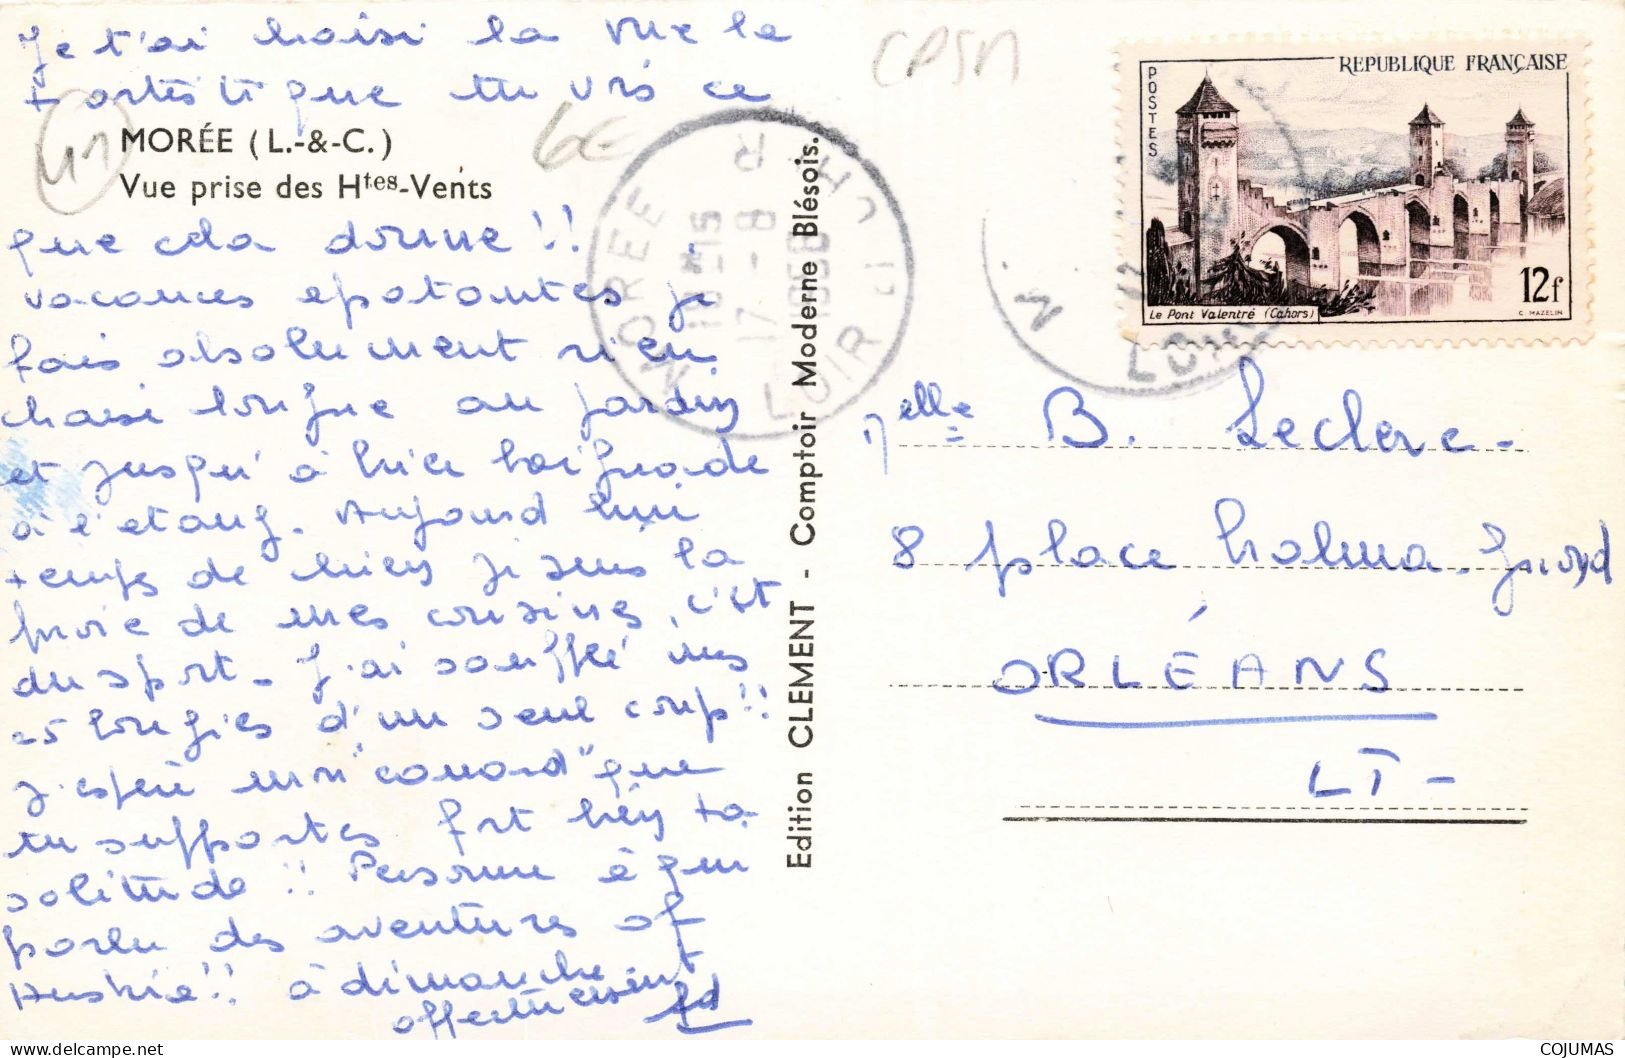 Je t'ai choisi la vue la
+ artistique tu vois ce
41
MORÉE (L.-&-C.)
Vue prise des Htes-Vents
6€
CPSM
que cela donne !!
vacances epatantes je
fais absolument rien
chaise longue au jardin
et jusqu'à hier baignade
à l'etang. Aujourd'hui
temps de chien je suis la
proie de mes cousines, c'est
du sport. J'ai soufflé mes
bougies d'un seul coup!!
J'espère mon "canard" que
tu supportes fort bien ta
solitude !! Personne à qui
parler des aventures of
à dimanche
affectueusement
MOREE
LOIR CHER
17 - 8
Edition CLEMENT - Comptoir Moderne Blésois.
POSTES
REPUBLIQUE FRANÇAISE
Le Pont Valentré (Cahors)
12f
C. MAZELIN
Melle B. Leclerc
8 place
ORLÉANS
LT -
COJUMAS